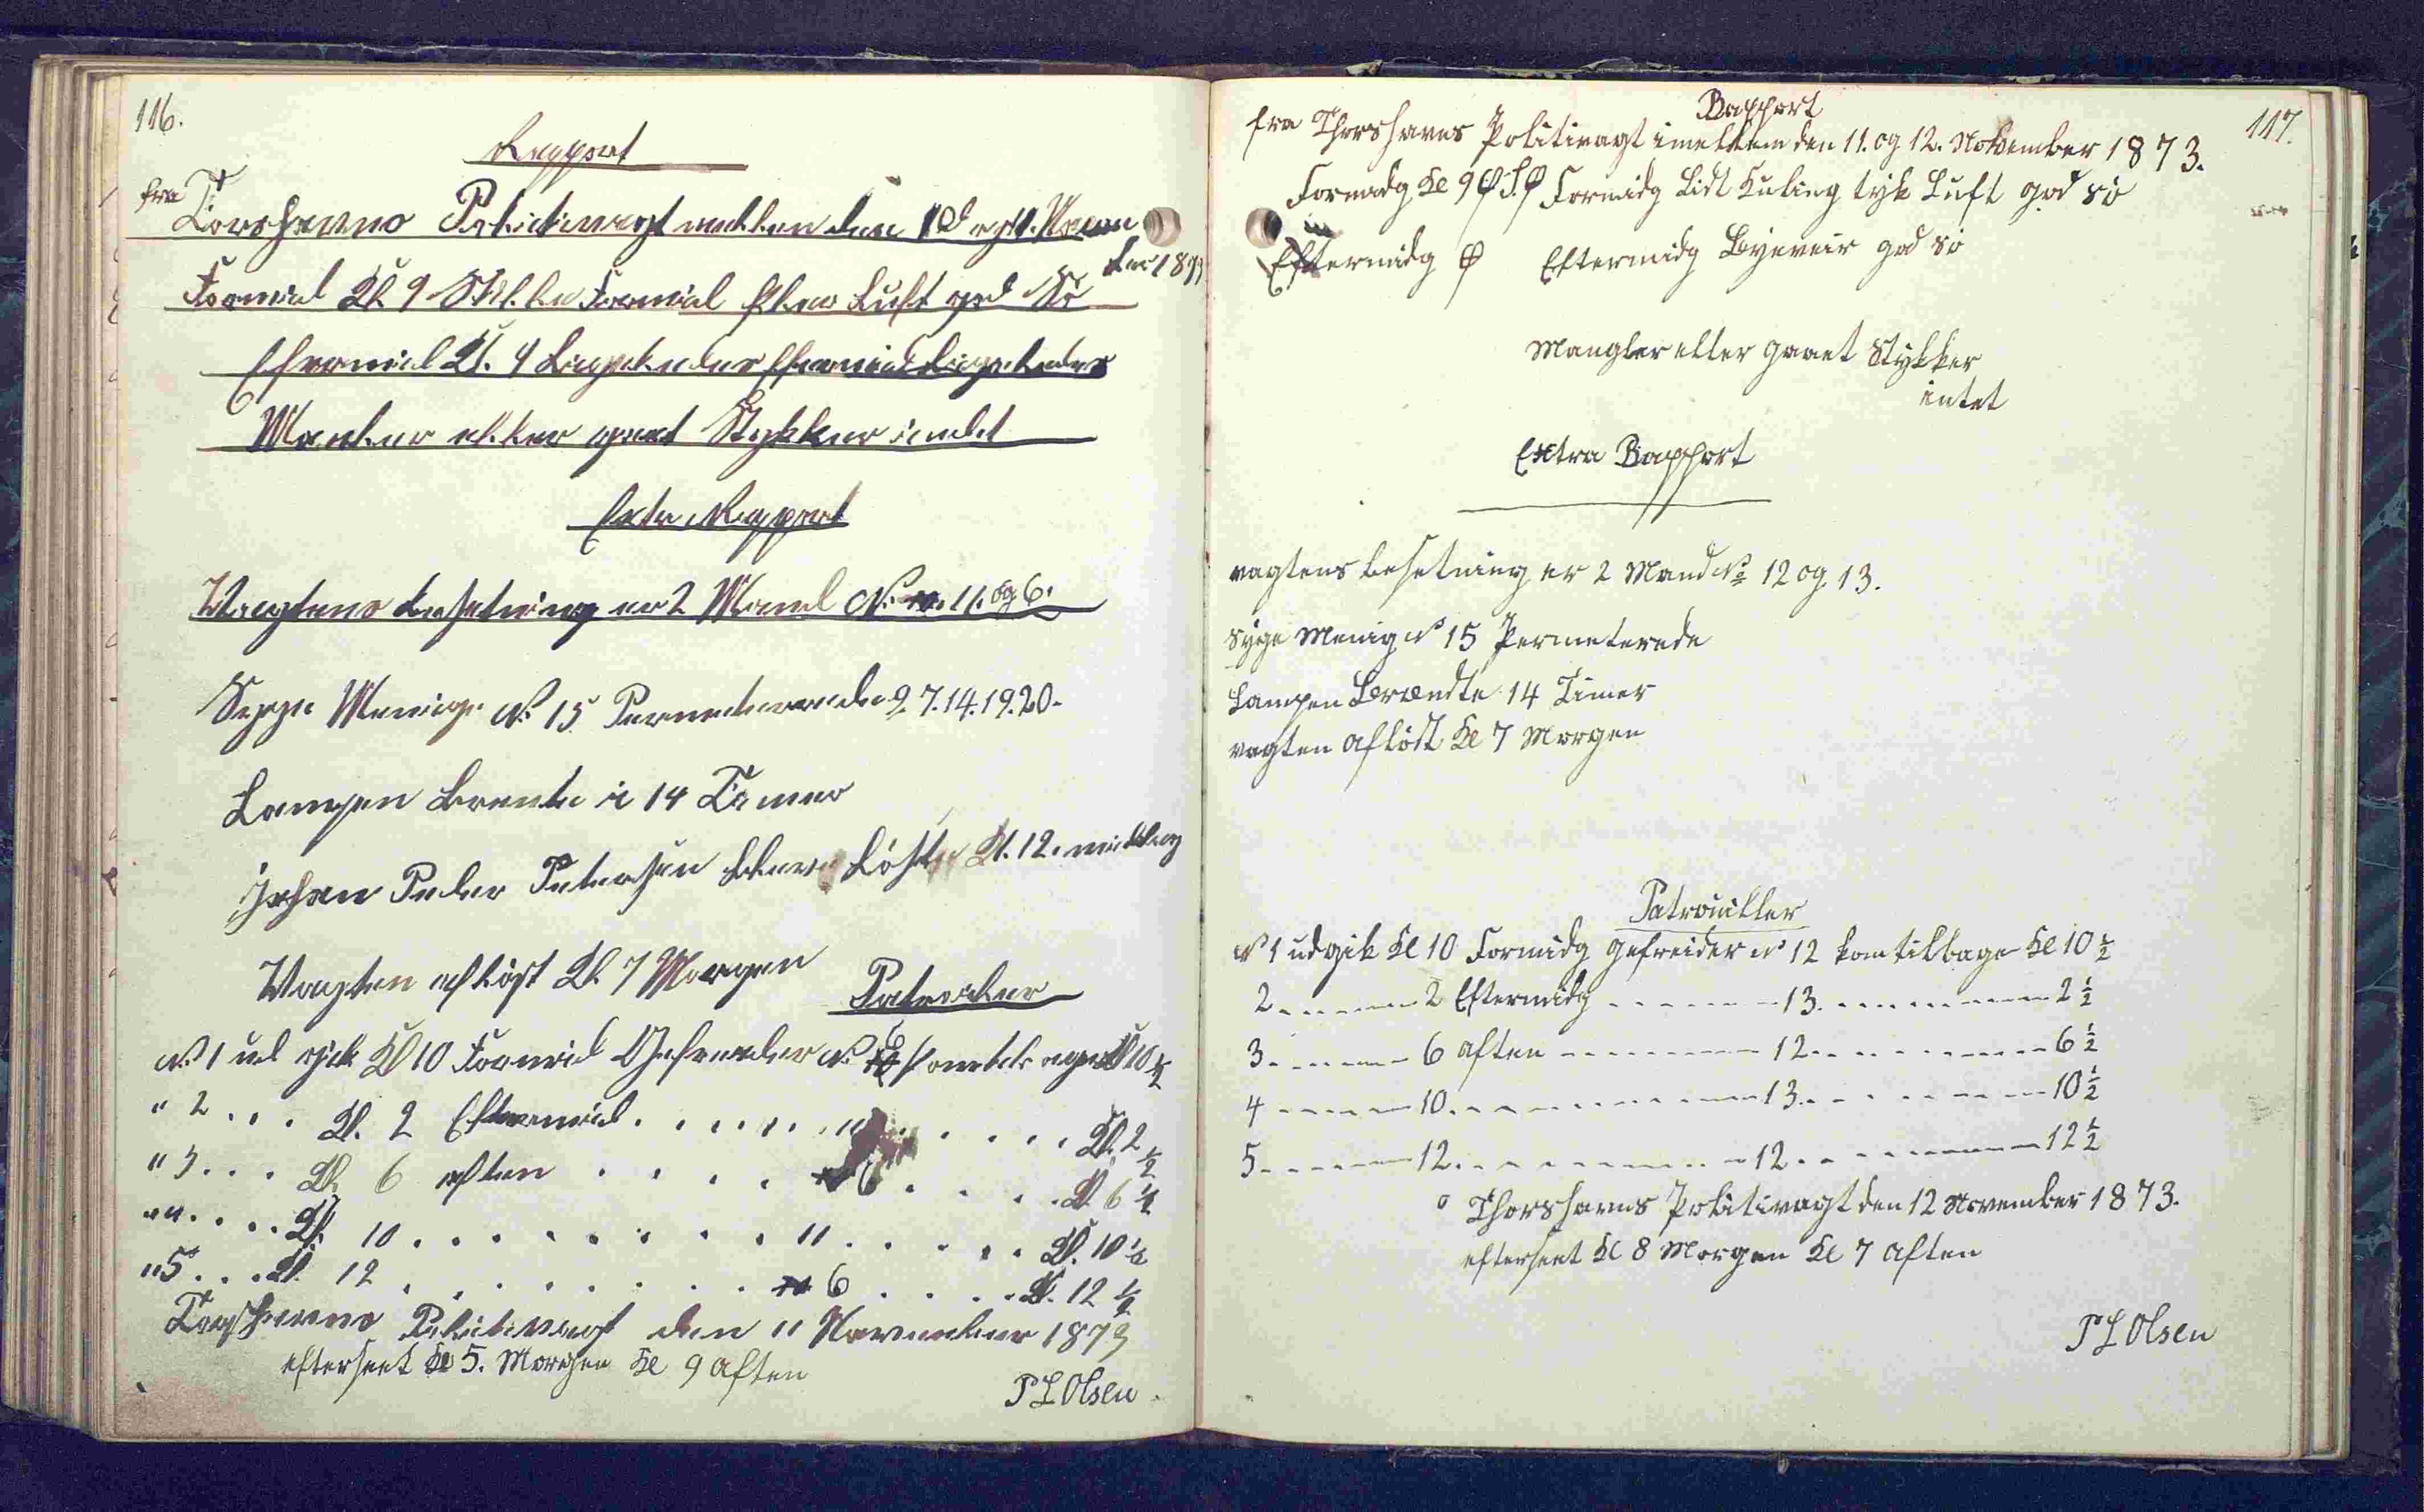 116.
Rapport
fra Torshavns Politivagt mellem den 10 og 11. Novem
ber 1873
Formid Kl. 9 Stille Formid klar Luft god Sö
Efermid Kl. 4 Ligeledes Efermid Ligeledes
Manker eller gaaet Stykker indet
Exta Rapport
Vagtens besetning er 2 Mand No. 11. og 6.
Syge Menige No 15 Permeterede 2. 7. 14. 19. 20.
Lampen brente i 14 Timer
Johan Peder Petersen blev Löst Kl. 12. middag
Vagten aflöst Kl. 7 Morgen
Patroler
No. 1 ud gik Kl 10 Formid Gefreider No. 6 kom tilbage Kl 10 1/2
" 2 . . . Kl. 2 Eftermid . . . . . 11 . . . . . Kl. 2 1/2
" 3 . . . Kl. 6 aften . . . . 6 . . . . Kl. 6 1/2
" 4 . . . . Kl. 10 . . . . . . . . 11 . . . . . Kl. 10 1/2
" 5 . . . Kl. 12 . . . . . . . . 6 . . . . Kl. 12 1/2
Torshavns Politivagt den 11 November 1873
efterseet Kl 5. Morgen Kl 9 Aften
P L Olsen
117.
Rapport
fra Thorshavns Politivagt imellem den 11. og 12. November 1873.
Formidg Kl 9 Φ S. Φ Formidg Lidt Kuling tyk Luft god sö
Eftermidg Φ Eftermidg Byeveir god sö
Mangler eller gaaet Stykker
intet
Extra Rapport
vagtens besetning er 2 Mand No 12 og 13.
syge Menig No 15 Permeterede
Lampen Brændte 14 Timer
vagten aflöst Kl 7 Morgen
Patrouiller
No 1 udgik Kl 10 Formidg Gefreider No 12 kom tilbage Kl 10 1/2
2 - - - - - 2 Eftermidg - - - - - - 13. - - - - - - - 2 1/2
3. - - - - - 6 aften - - - - - - - 12 - - - - - - - 6 1/2
4 - - - - - 10. - - - - - - - - - 13. - - - - - - - 10 1/2
5 - - - - - 12. - - - - - - - - 12 - - - - - - - 12 1/2
Thorshavns Politivagt den 12 November 1873.
efterseet Kl 8 Morgen Kl 7 Aften
P L Olsen